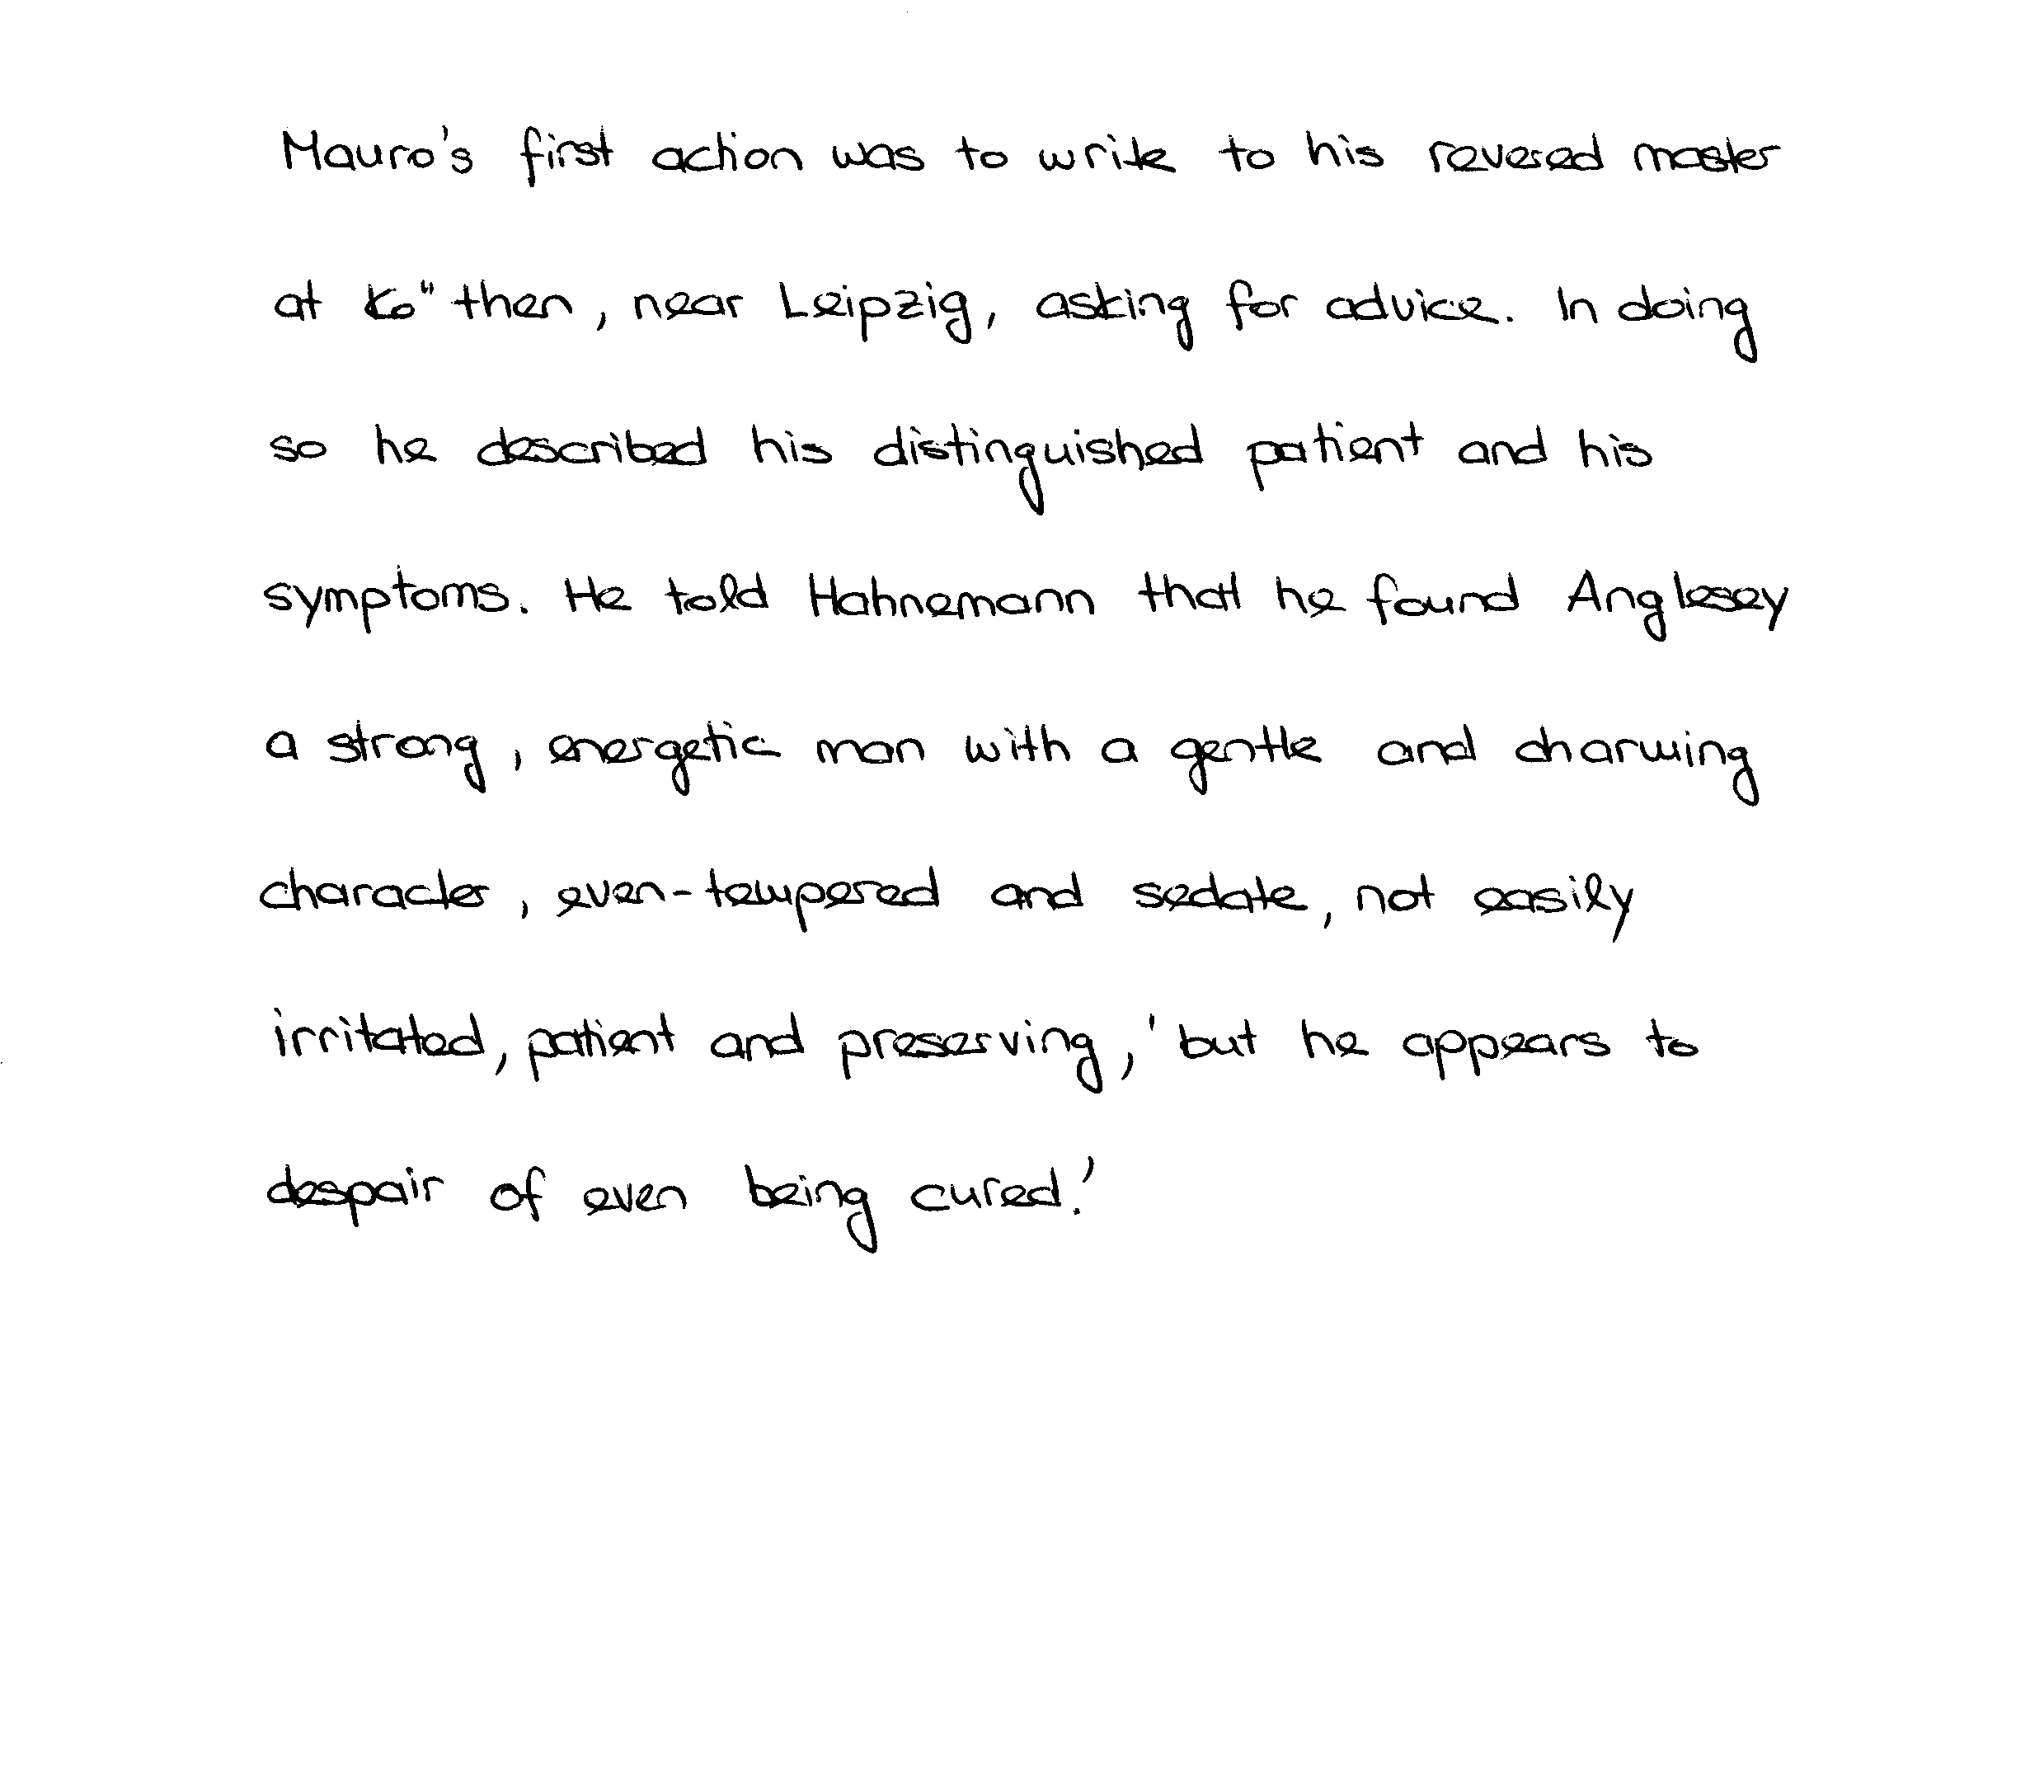 Mauro's first action was to write to his revered master
at Ko" then, near Leipzig, asking for advice. In doing
so he described his distinguished patient and his
symptoms. He told Hahnemann that he found Anglesey
a strong, energetic man with a gentle and charming
character, even-tempered and sedate, not easily
irritated, patient and preserving, 'but he appears to
despair of even being cured.'